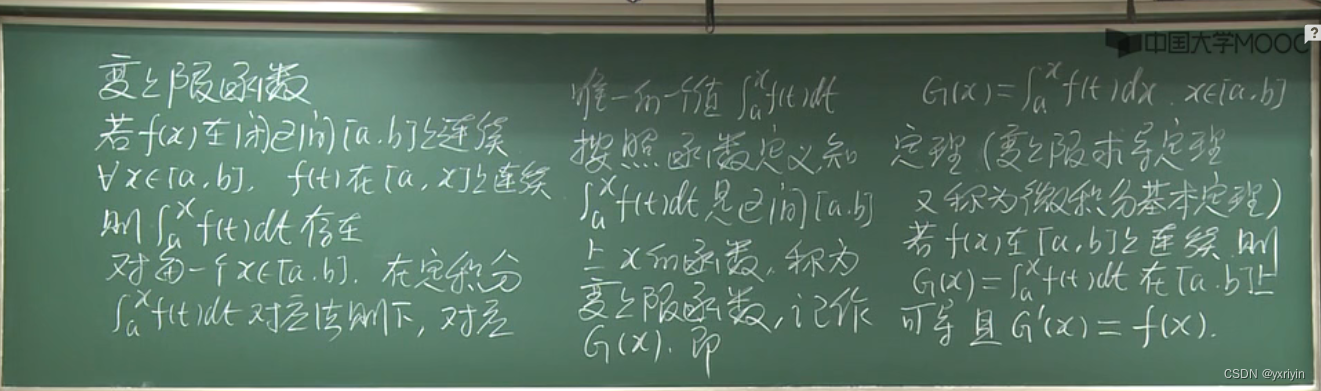 变上限函数
若f(x)在闭区间[a.b]上连续
∀x∈[a.b]. f(t)在[a.x]上连续
则∫ₐˣf(t)dt存在
对每一个x∈[a.b]. 在定积分
∫ₐˣf(t)dt对应法则下, 对应
唯一的一个值∫ₐˣf(t)dt
按照函数定义,知
∫ₐˣf(t)dt是区间[a.b]
上x的函数, 称为
变上限函数, 记作
G(x). 即
G(x)=∫ₐˣf(t)dx. x∈[a.b]
定理(变上限求导定理
又称为微积分基本定理)
若f(x)在[a,b]上连续.则
G(x)=∫ₐˣf(t)dt在[a.b]上
可导且G'(x)=f(x).
中国大学MOOC
?
CSDN @yxriyin